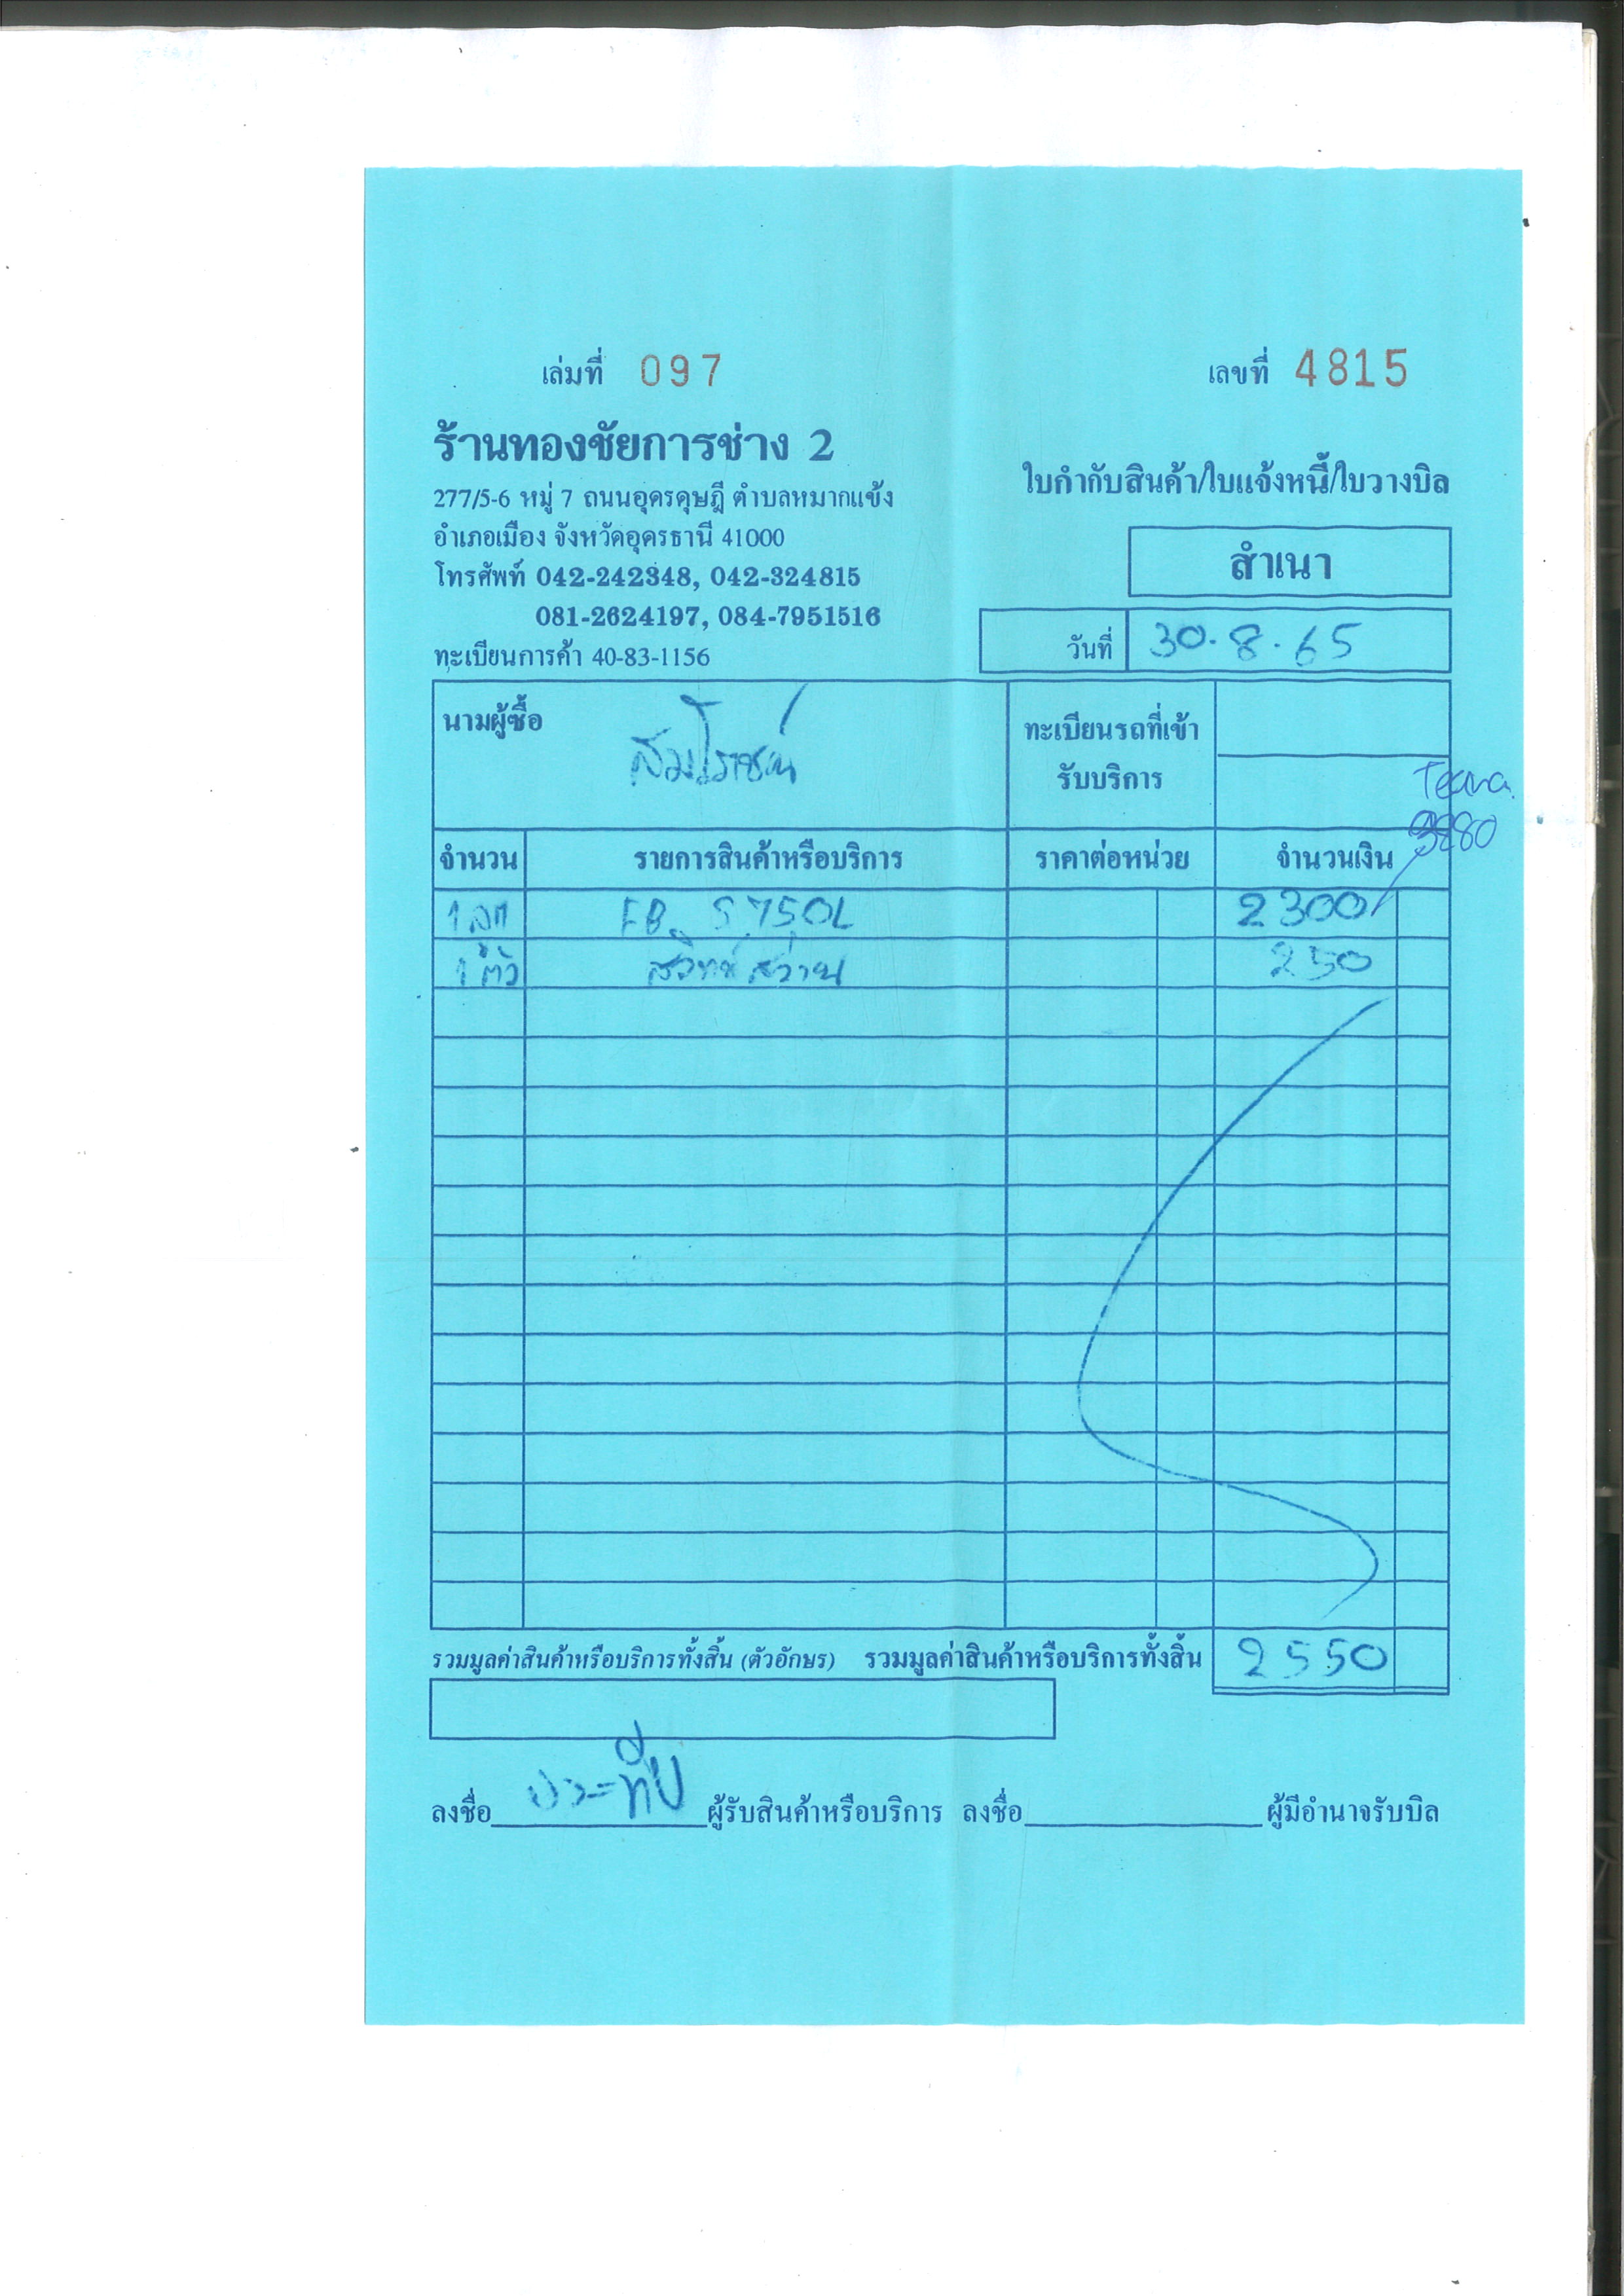 เล่มที่ 097
เลขที่ 4815
ร้านทองชัยการช่าง 2
277/5-6 หมู่ 7 ถนนอุดรดุษฎี ตำบลหมากแข้ง
อำเภอเมือง จังหวัดอุดรธานี 41000
โทรศัพท์ 042-242348, 042-324815
081-2624197, 084-7951516
ทะเบียนการค้า 40-83-1156
ใบกำกับสินค้า/ใบแจ้งหนี้/ใบวางบิล
สำเนา
วันที่ 30.8.65
นามผู้ซื้อ
ทะเบียนรถที่เข้า
รับบริการ
Teana
จำนวน รายการสินค้าหรือบริการ ราคาต่อหน่วย จำนวนเงิน
1 ลูก FB S 750L 2300
1 ตัว 250
รวมมูลค่าสินค้าหรือบริการทั้งสิ้น (ตัวอักษร) รวมมูลค่าสินค้าหรือบริการทั้งสิ้น 2550
ลงชื่อ ประทีป ผู้รับสินค้าหรือบริการ ลงชื่อ ผู้มีอำนาจรับบิล